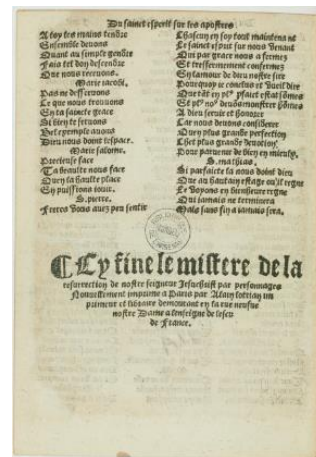 Du sainct esperit sur les apostres
A toy tes mains tendre
Ensemble devons
Quant au simple gendre
Fais tel don descendre
Que nous recevons.
Marie iacobi.
Pas ne desservons
Ce que nous trouvons
En ta saincte grace
Si bien te servons
Bel exemple avons
Dieu nous doint lespace.
Marie salome.
Precieuse face
Ta beaulte nous face
Quen la haulte place
En puissions iouir.
S. pierre.
Freres vous avez peu sentir
Chascun en soy tout maintenant
Le sainct esperit sur nous venant
Qui par grace nous a fermez
Et tresfermement confermez
En lamour de dieu nostre sire
Pourquoy ie conclus et vueil dire
Que
Et
A dieu servir et honorer
Car nous devons considerer
Quen plus grande perfection
Chet plus grande devotion
Pour parvenir de bien en mieulx.
S. mathias.
Si parfaicte la nous doint dieu
Que au haultain estage ou il regne
Le voyons en bieneure regne
Qui iamais ne terminera
Mais sans fin a iamais sera.
Cy fine le mistere de la
resurrection de nostre seigneur Jesuchrist par personnages
Nouvellement imprime a Paris par Alain lotrian im
primeur et libraire demourant en la rue neufve
nostre Dame a lenseigne de lescu
de France.